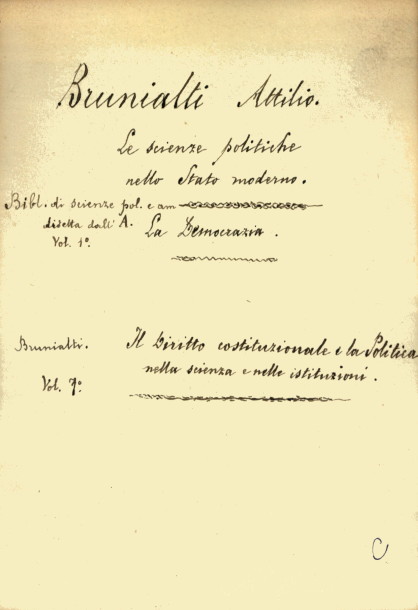 Brunialti Attilio.
Le scienze politiche
nello Stato moderno.
Bibl. di scienze pol. e am
diretta dall' A.
Vol. 1º.
La Democrazia.
Brunialti.
Vol. 7º
Il Diritto costituzionale e la Politica
nella scienza e nelle istituzioni.
C